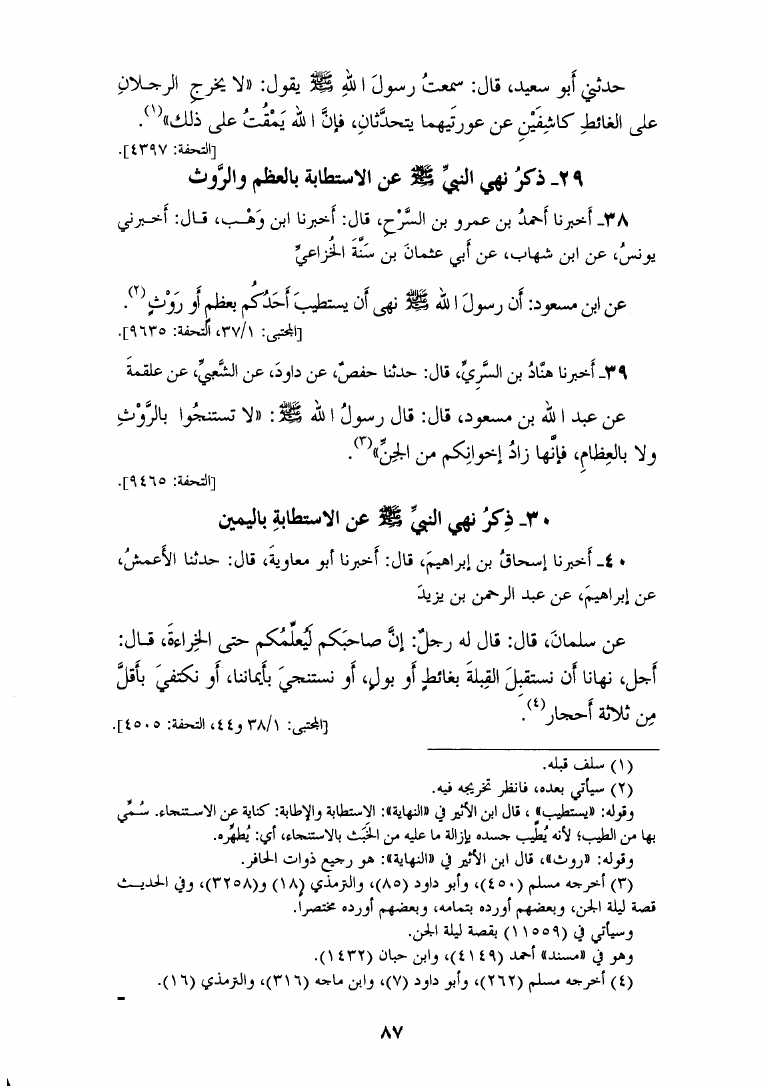 حدثني أبو سعيد، قال: سمعتُ رسولَ اللهِ ﷺ يقول: «لا يخرجِ الرجـلانِ
على الغائطِ كاشِفَيْنِ عن عورتَيهما يتحدَّثانِ، فإنَّ الله يَمْقُتُ على ذلك»(١).
[التحفة: ٤٣٩٧].
٢٩ـ ذكرُ نهي النبيِّ ﷺ عن الاستطابة بالعظم والرَّوث
٣٨ـ أخبرنا أحمدُ بن عمرو بن السَّرْحِ، قال: أخبرنا ابن وَهْـب، قـال: أخـبرني
يونسُ، عن ابن شهاب، عن أبي عثمانَ بن سَنَّةَ الخُزاعيِّ
عن ابن مسعود: أن رسولَ الله ﷺ نهى أن يستطيبَ أحَدُكُم بعظمٍ أو رَوْثٍ(٢).
[المجتبى: ٣٧/١، التحفة: ٩٦٣٥].
٣٩ـ أخبرنا هنَّادُ بن السَّرِيِّ، قال: حدثنا حفصٌ، عن داودَ، عن الشَّعبيِّ، عن علقمةَ
عن عبد الله بن مسعود، قال: قال رسولُ الله ﷺ: «لا تستنجُوا بالرَّوْثِ
ولا بالعِظامِ، فإنَّها زادُ إخوانِكم من الجِنِّ»(٣).
[التحفة: ٩٤٦٥].
٣٠ـ ذِكرُ نهي النبيِّ ﷺ عن الاستطابةِ باليمين
٤٠ـ أخبرنا إسحاقُ بن إبراهيمَ، قال: أخبرنا أبو معاويةَ، قال: حدثنا الأعمشُ،
عن إبراهيمَ، عن عبد الرحمن بن يزيدَ
عن سلمانَ، قال: قال له رجلٌ: إنَّ صاحبَكم لَيُعلِّمُكم حتى الخِراءةَ، قـال:
أجل، نهانا أن نستقبلَ القِبلةَ بغائطٍ أو بولٍ، أو نستنجيَ بأيماننا، أو نكتفيَ بأقلَّ
مِن ثلاثة أحجار(٤).
[المجتبى: ٣٨/١ و٤٤، التحفة: ٤٥٠٥].
(١) سلف قبله.
(٢) سيأتي بعده، فانظر تخريجه فيه.
وقوله: «يستطيب»، قال ابن الأثير في «النهاية»: الاستطابة والإطابة: كناية عن الاسـتنجاء. سُـمِّي
بها من الطيب؛ لأنه يُطيِّب جسده بإزالة ما عليه من الخَبَث بالاستنجاء، أي: يُطهِّره.
وقوله: «روث»، قال ابن الأثير في «النهاية»: هو رجيع ذوات الحافر.
(٣) أخرجه مسلم (٤٥٠)، وأبو داود (٨٥)، والترمذي (١٨) و(٣٢٥٨)، وفي الحديـث
قصة ليلة الجن، وبعضهم أورده بتمامه، وبعضهم أورده مختصراً.
وسيأتي في (١١٥٥٩) بقصة ليلة الجن.
وهو في «مسند» أحمد (٤١٤٩)، وابن حبان (١٤٣٢).
(٤) أخرجه مسلم (٢٦٢)، وأبو داود (٧)، وابن ماجه (٣١٦)، والترمذي (١٦).
٨٧